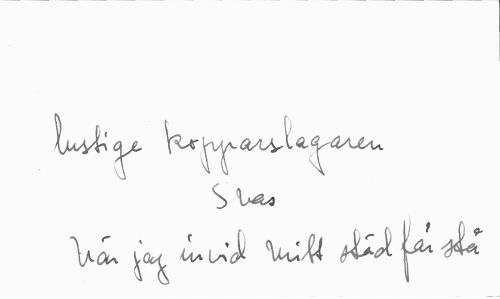 lustige kopparslagaren
Svas
När jag invid mitt städ får stå